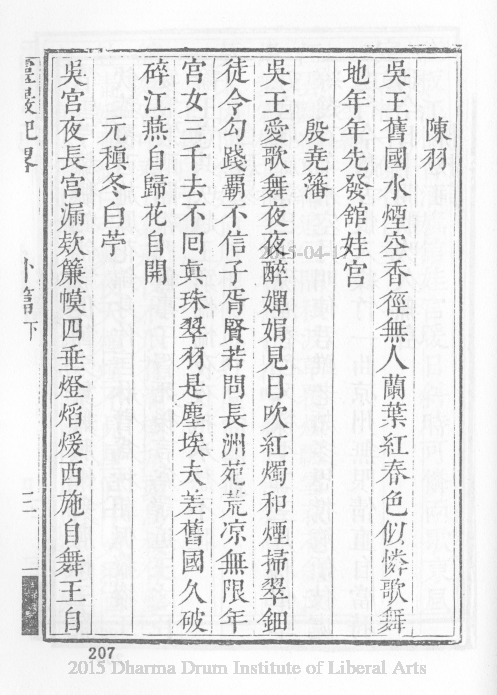 陳羽
吳王舊國水煙空香徑無人蘭葉紅春色似憐歌舞
地年年先發舘娃宮
殷尭籓
吳王愛歌舞夜夜醉嬋娟見日吹紅燭和煙掃翠鈿
徒令勾踐覇不信子胥賢若問長洲苑荒凉無限年
宮女三千去不囘眞珠翠羽是塵埃夫差舊國久破
碎江燕自歸花自開
元稹冬白苧
吳宮夜長宮漏欵簾幙四垂燈熖煖西施自舞王自
靈巖記畧
外篇下
三
207
2015-04-1
2015 Dharma Drum Institute of Liberal Arts